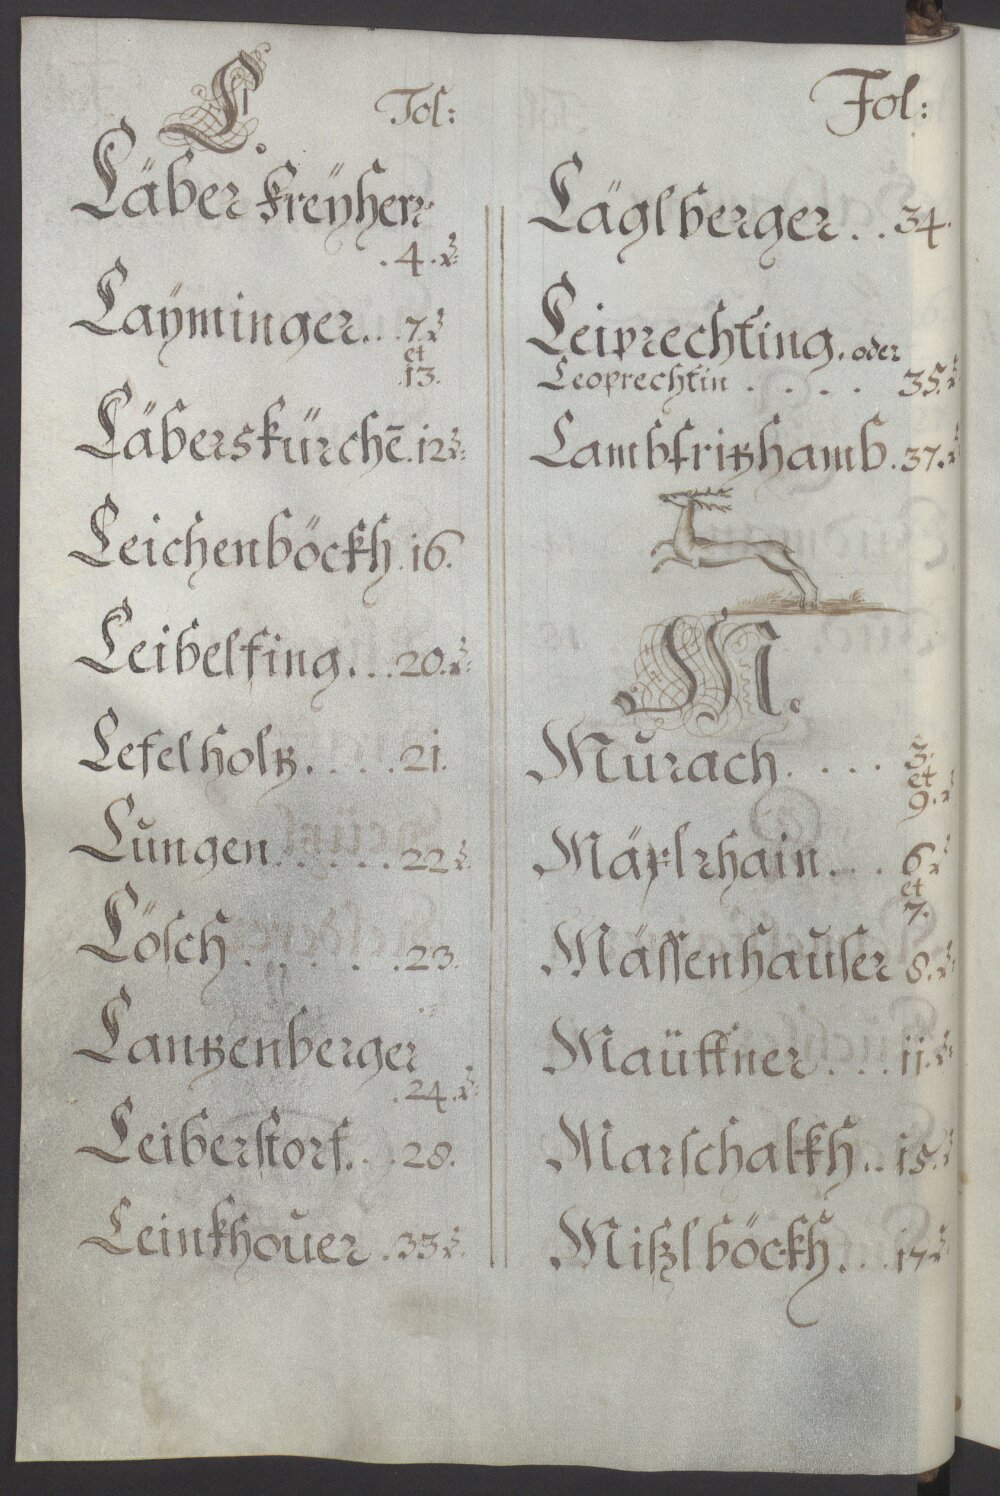 L.
Fol:
Läber Freÿherr
.4.
Laÿminger. . 7.
et
13.
Läberskürchē. 12
Leichenböckh. 16.
Leibelfing. . . 20.
Lefelholtz. . . . 21.
Lungen. . . . . 22
Lösch . . . . . 23.
Lantzenberger
.24.
Leiberstorf. . . 28.
Leinkhouer . 33
Fol:
Läglberger. . 34.
Leiprechting. oder
Leoprechtin . . . . 35.
Lambfritzhamb. 37.
M.
Murach. . . . 3.
et
9.
Mäxlrhain. . . 6
et
7.
Mässenhauser 8.
Maüttner. . . 11.
Marschalkh. . 15.
Mißlböckh. . . 17